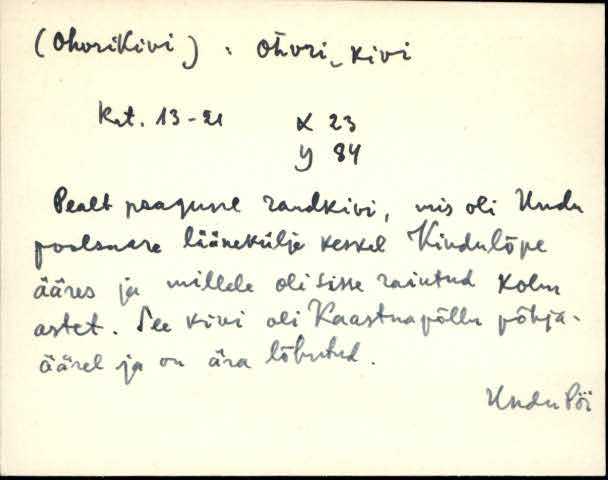 (Ohvrikivi) : ohvri_kivi
Kat. 13-21 X 23
Y 84
Pealt pragune randkivi, mis oli Undu
poolsaare läänekülje keskel Kindulõpe
ääres ja millele oli sisse raiutud kolm
astet. See kivi oli Kaastnapõllu põhja-
äärel ja on ära lõhutud.
Undu Pöi